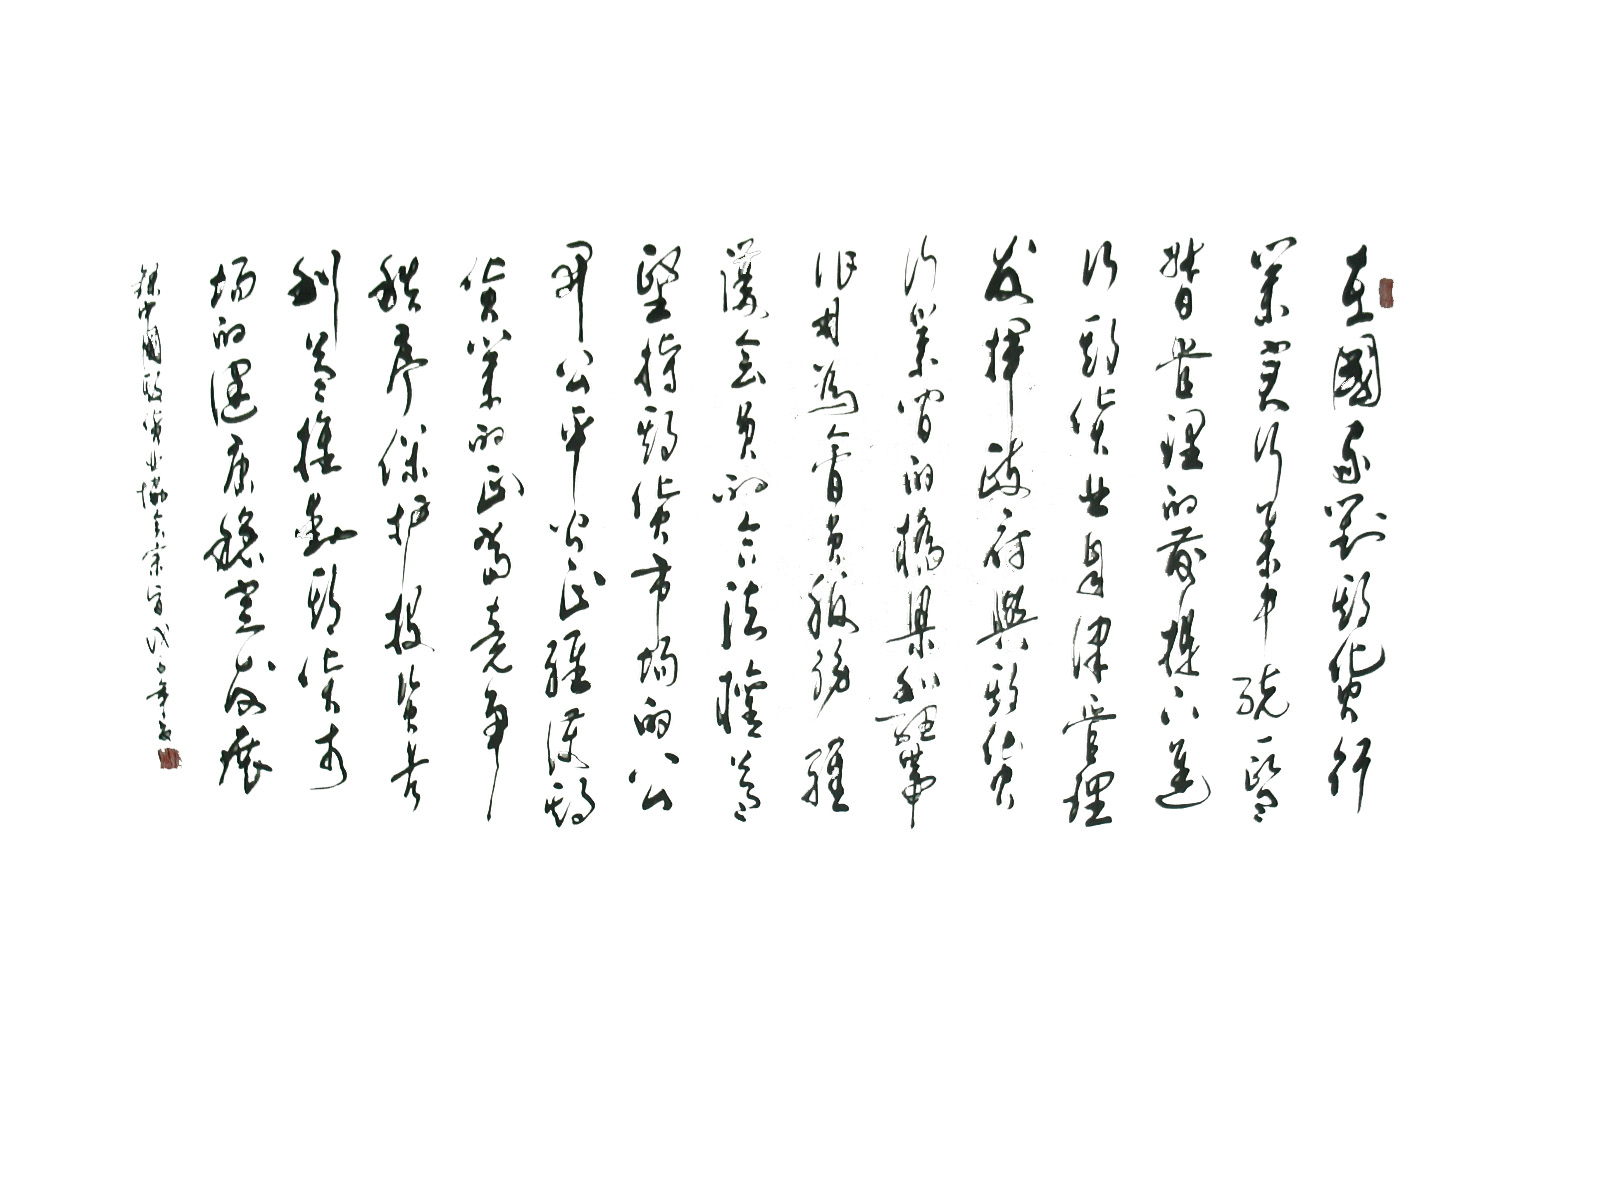 在國家對期貨行
業实行集中統一監
督管理的前提下進
行期貨业自律管理
发揮政府與期貨
行業间的橋梁和紐帶
作用為會員服務維
護会員的合法權益
堅持期貨市場的公
開公平公正維護期
貨業的正當竞争
秩序保护投資者
利益推動期貨市
場的健康穩定发展
錄中國期貨业協会宗旨戊子年